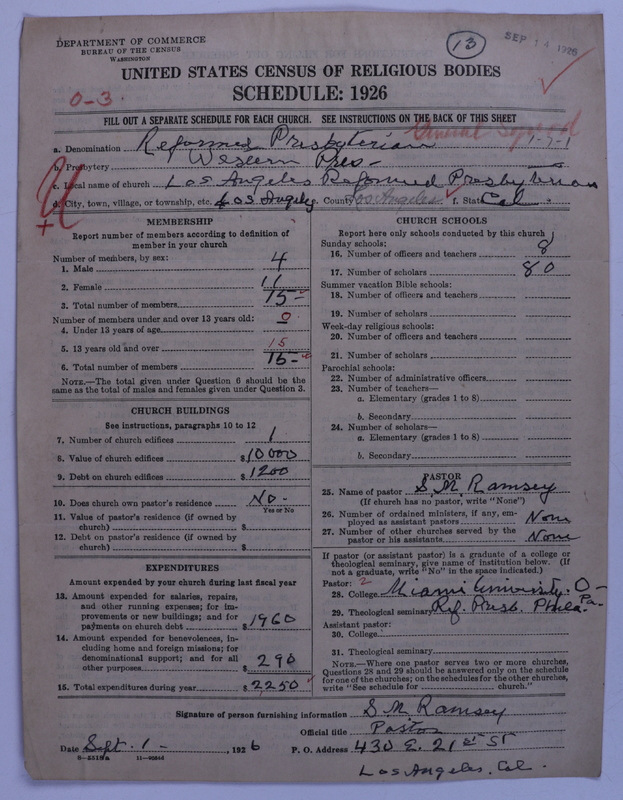 DEPARTMENT OF COMMERCE
BUREAU OF THE CENSUS
WASHINGTON
13
SEP 14 1926
UNITED STATES CENSUS OF RELIGIOUS BODIES
SCHEDULE: 1926
0-3
FILL OUT A SEPARATE SCHEDULE FOR EACH CHURCH. SEE INSTRUCTIONS ON THE BACK OF THIS SHEET
a. Denomination Reformed Presbyterian 1-7-1
b. Presbytery Western Pres-
c. Local name of church Los Angeles Reformed Presbyterian
d. City, town, village, or township, etc. Los Angeles County Los Angeles f. State Cal
MEMBERSHIP
Report number of members according to definition of
member in your church
Number of members, by sex:
1. Male 4
2. Female 11
3. Total number of members 15-
Number of members under and over 13 years old:
4. Under 13 years of age 0
5. 13 years old and over 15
6. Total number of members 15-
NOTE.—The total given under Question 6 should be the
same as the total of males and females given under Question 3.
CHURCH BUILDINGS
See instructions, paragraphs 10 to 12
7. Number of church edifices 1
8. Value of church edifices $10000
9. Debt on church edifices $1200
10. Does church own pastor's residence No-
Yes or No
11. Value of pastor's residence (if owned by
church) $
12. Debt on pastor's residence (if owned by
church) $
EXPENDITURES
Amount expended by your church during last fiscal year
13. Amount expended for salaries, repairs,
and other running expenses; for im-
provements or new buildings; and for
payments on church debt $1960
14. Amount expended for benevolences, in-
cluding home and foreign missions; for
denominational support; and for all
other purposes 290
15. Total expenditures during year $2250
CHURCH SCHOOLS
Report here only schools conducted by this church
Sunday schools:
16. Number of officers and teachers 8
17. Number of scholars 80
Summer vacation Bible schools:
18. Number of officers and teachers
19. Number of scholars
Week-day religious schools:
20. Number of officers and teachers
21. Number of scholars
Parochial schools:
22. Number of administrative officers
23. Number of teachers—
a. Elementary (grades 1 to 8)
b. Secondary
24. Number of scholars—
a. Elementary (grades 1 to 8)
b. Secondary
PASTOR
25. Name of pastor S. M. Ramsey
(If church has no pastor, write "None")
26. Number of ordained ministers, if any, em-
ployed as assistant pastors None
27. Number of other churches served by the
pastor or his assistants None
If pastor (or assistant pastor) is a graduate of a college or
theological seminary, give name of institution below. (If
not a graduate, write "No" in the space indicated.)
Pastor: 2
28. College Miami University. O-
29. Theological seminary Ref. Presb. Phila. Pa.
Assistant pastor:
30. College
31. Theological seminary
NOTE.—Where one pastor serves two or more churches,
Questions 28 and 29 should be answered only on the schedule
for one of the churches; on the schedules for the other churches,
write "See schedule for church."
Signature of person furnishing information S M Ramsey
Official title Pastor
Date Sept. 1-, 1926 P. O. Address 430 E. 21st St
8-5518a 11-9054d
Los Angeles. Cal.